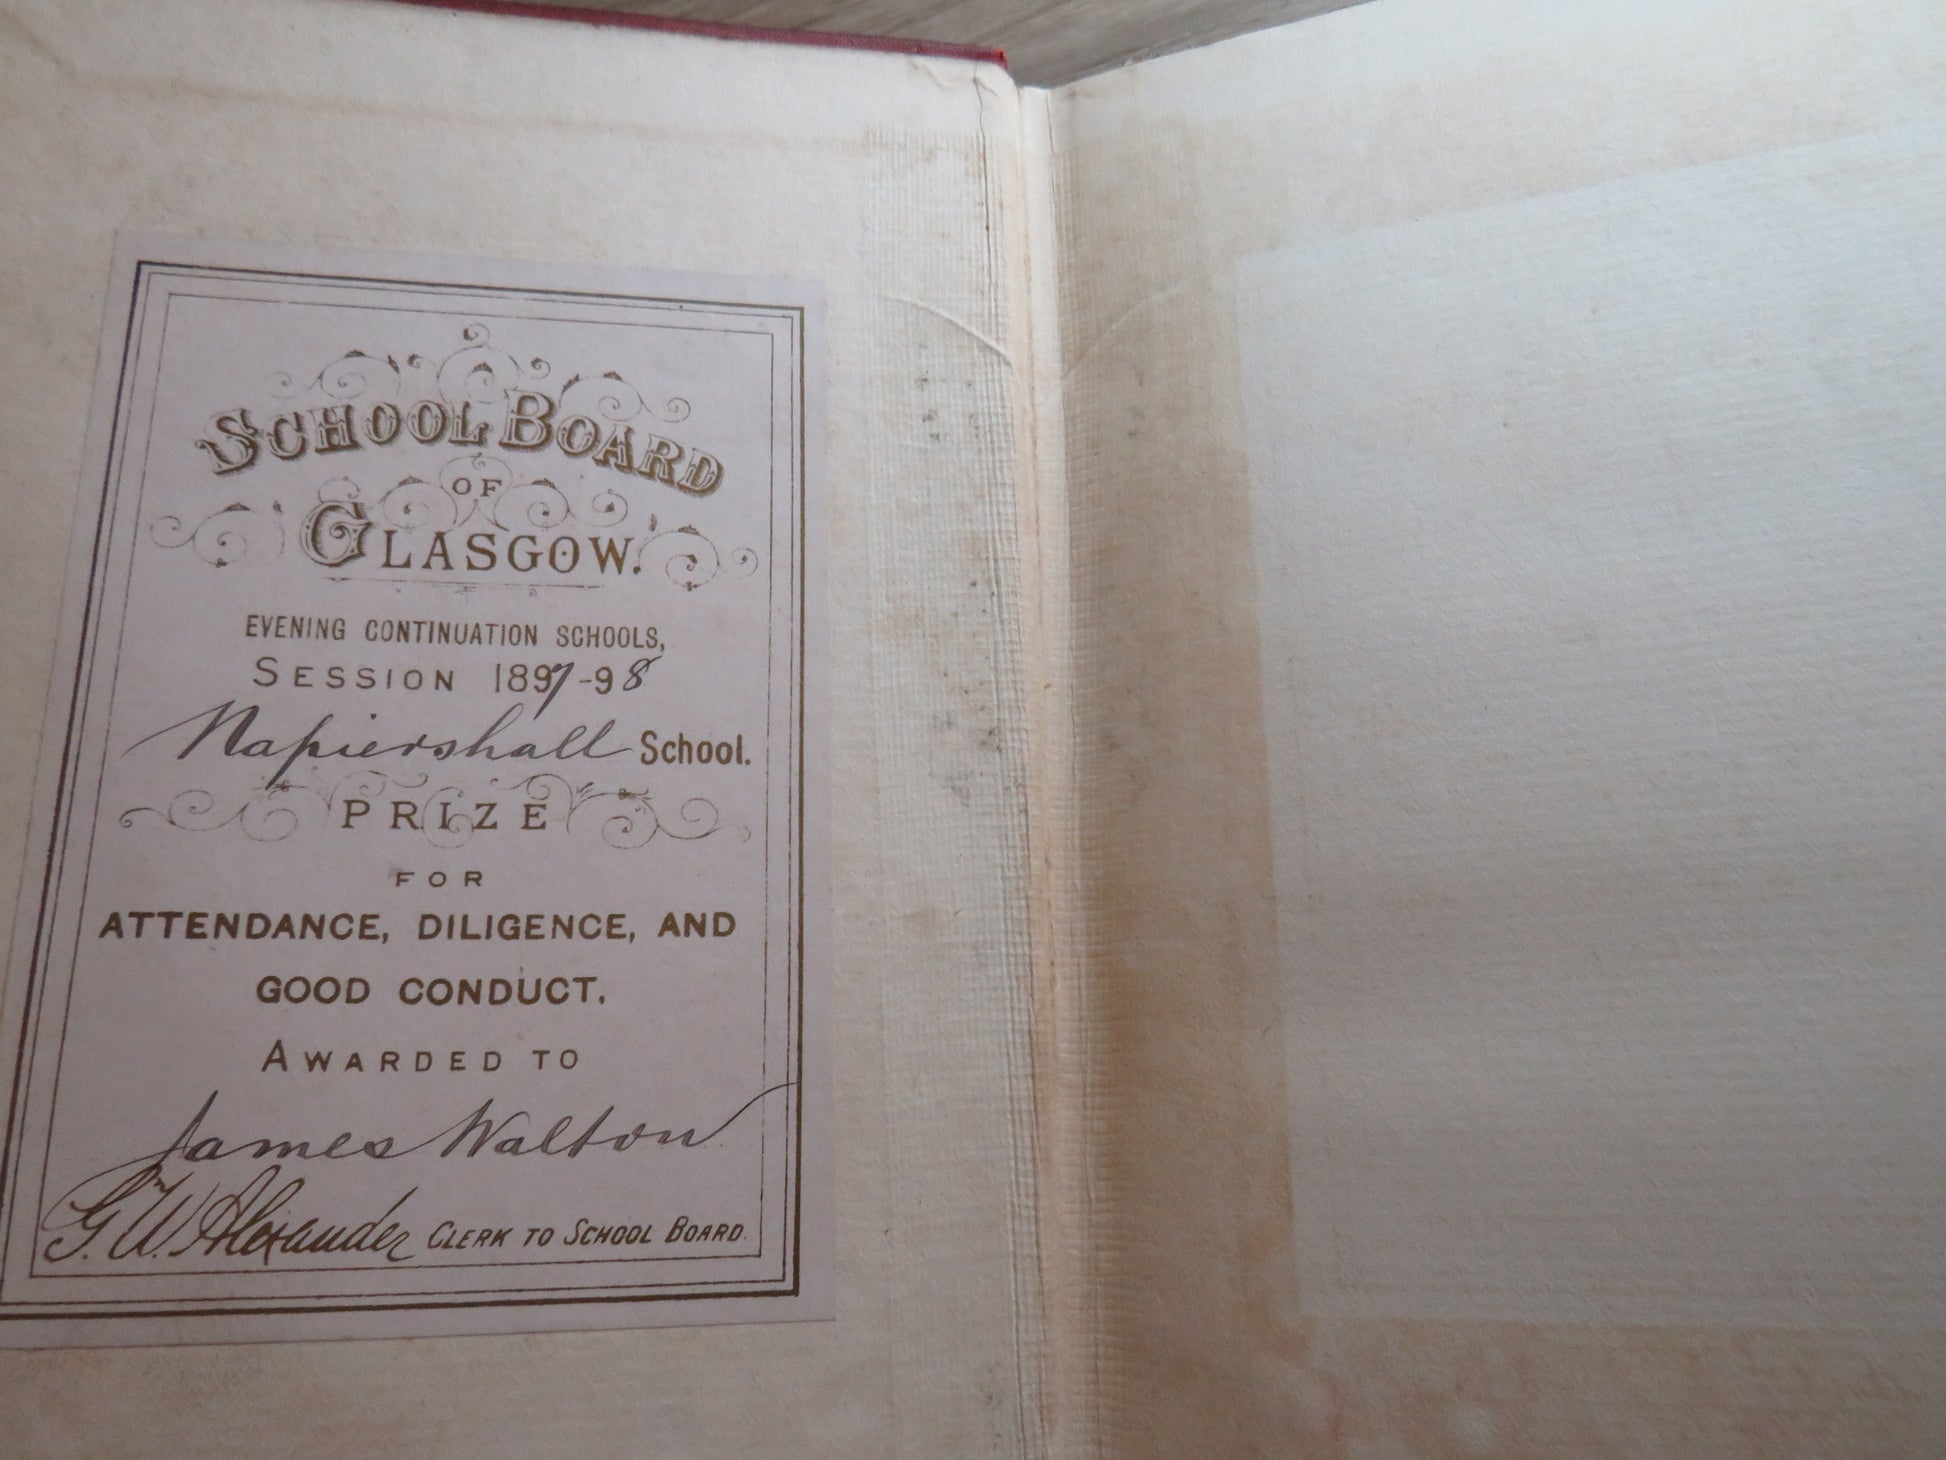 SCHOOL BOARD
OF
GLASGOW.
EVENING CONTINUATION SCHOOLS,
SESSION 1897-98
Napiershall School.
PRIZE
FOR
ATTENDANCE, DILIGENCE, AND
GOOD CONDUCT,
AWARDED TO
James Walton
G. W. Alexander CLERK TO SCHOOL BOARD.